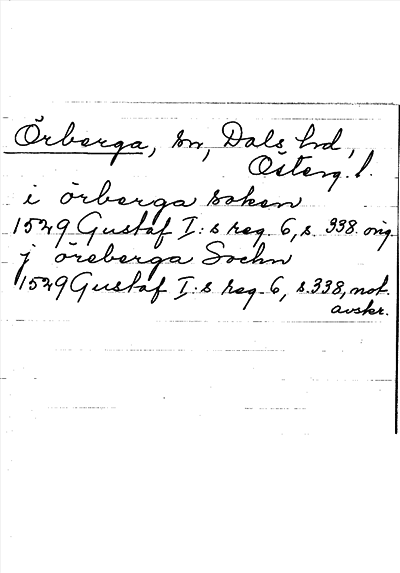 Örberga, sn, Dals hd,
Österg. l.
i örberga soken
1529 Gustaf I:s reg. 6, s. 338. orig.
j öreberga Sochn
1529 Gustaf I:s reg. 6, s. 338, not.
avskr.